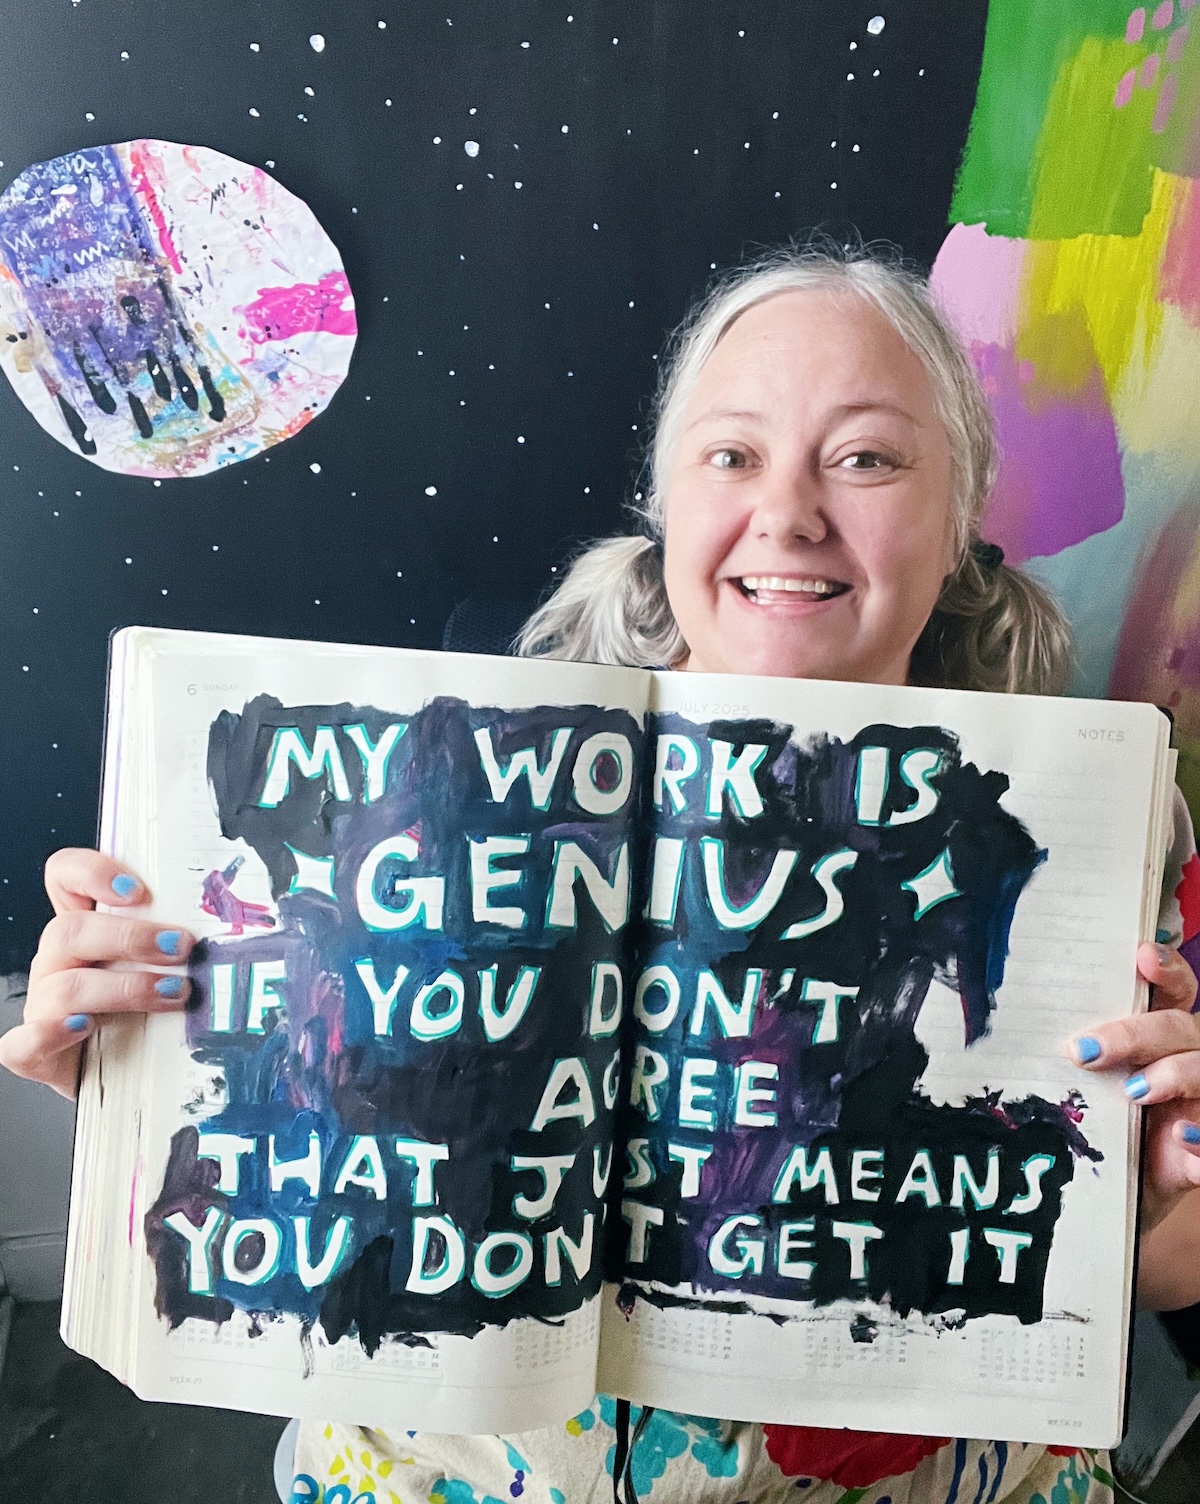 6 SUNDAY
JULY 2025
NOTES
MY WORK IS
GENIUS
IF YOU DON'T
AGREE
THAT JUST MEANS
YOU DON'T GET IT
WEEK 27